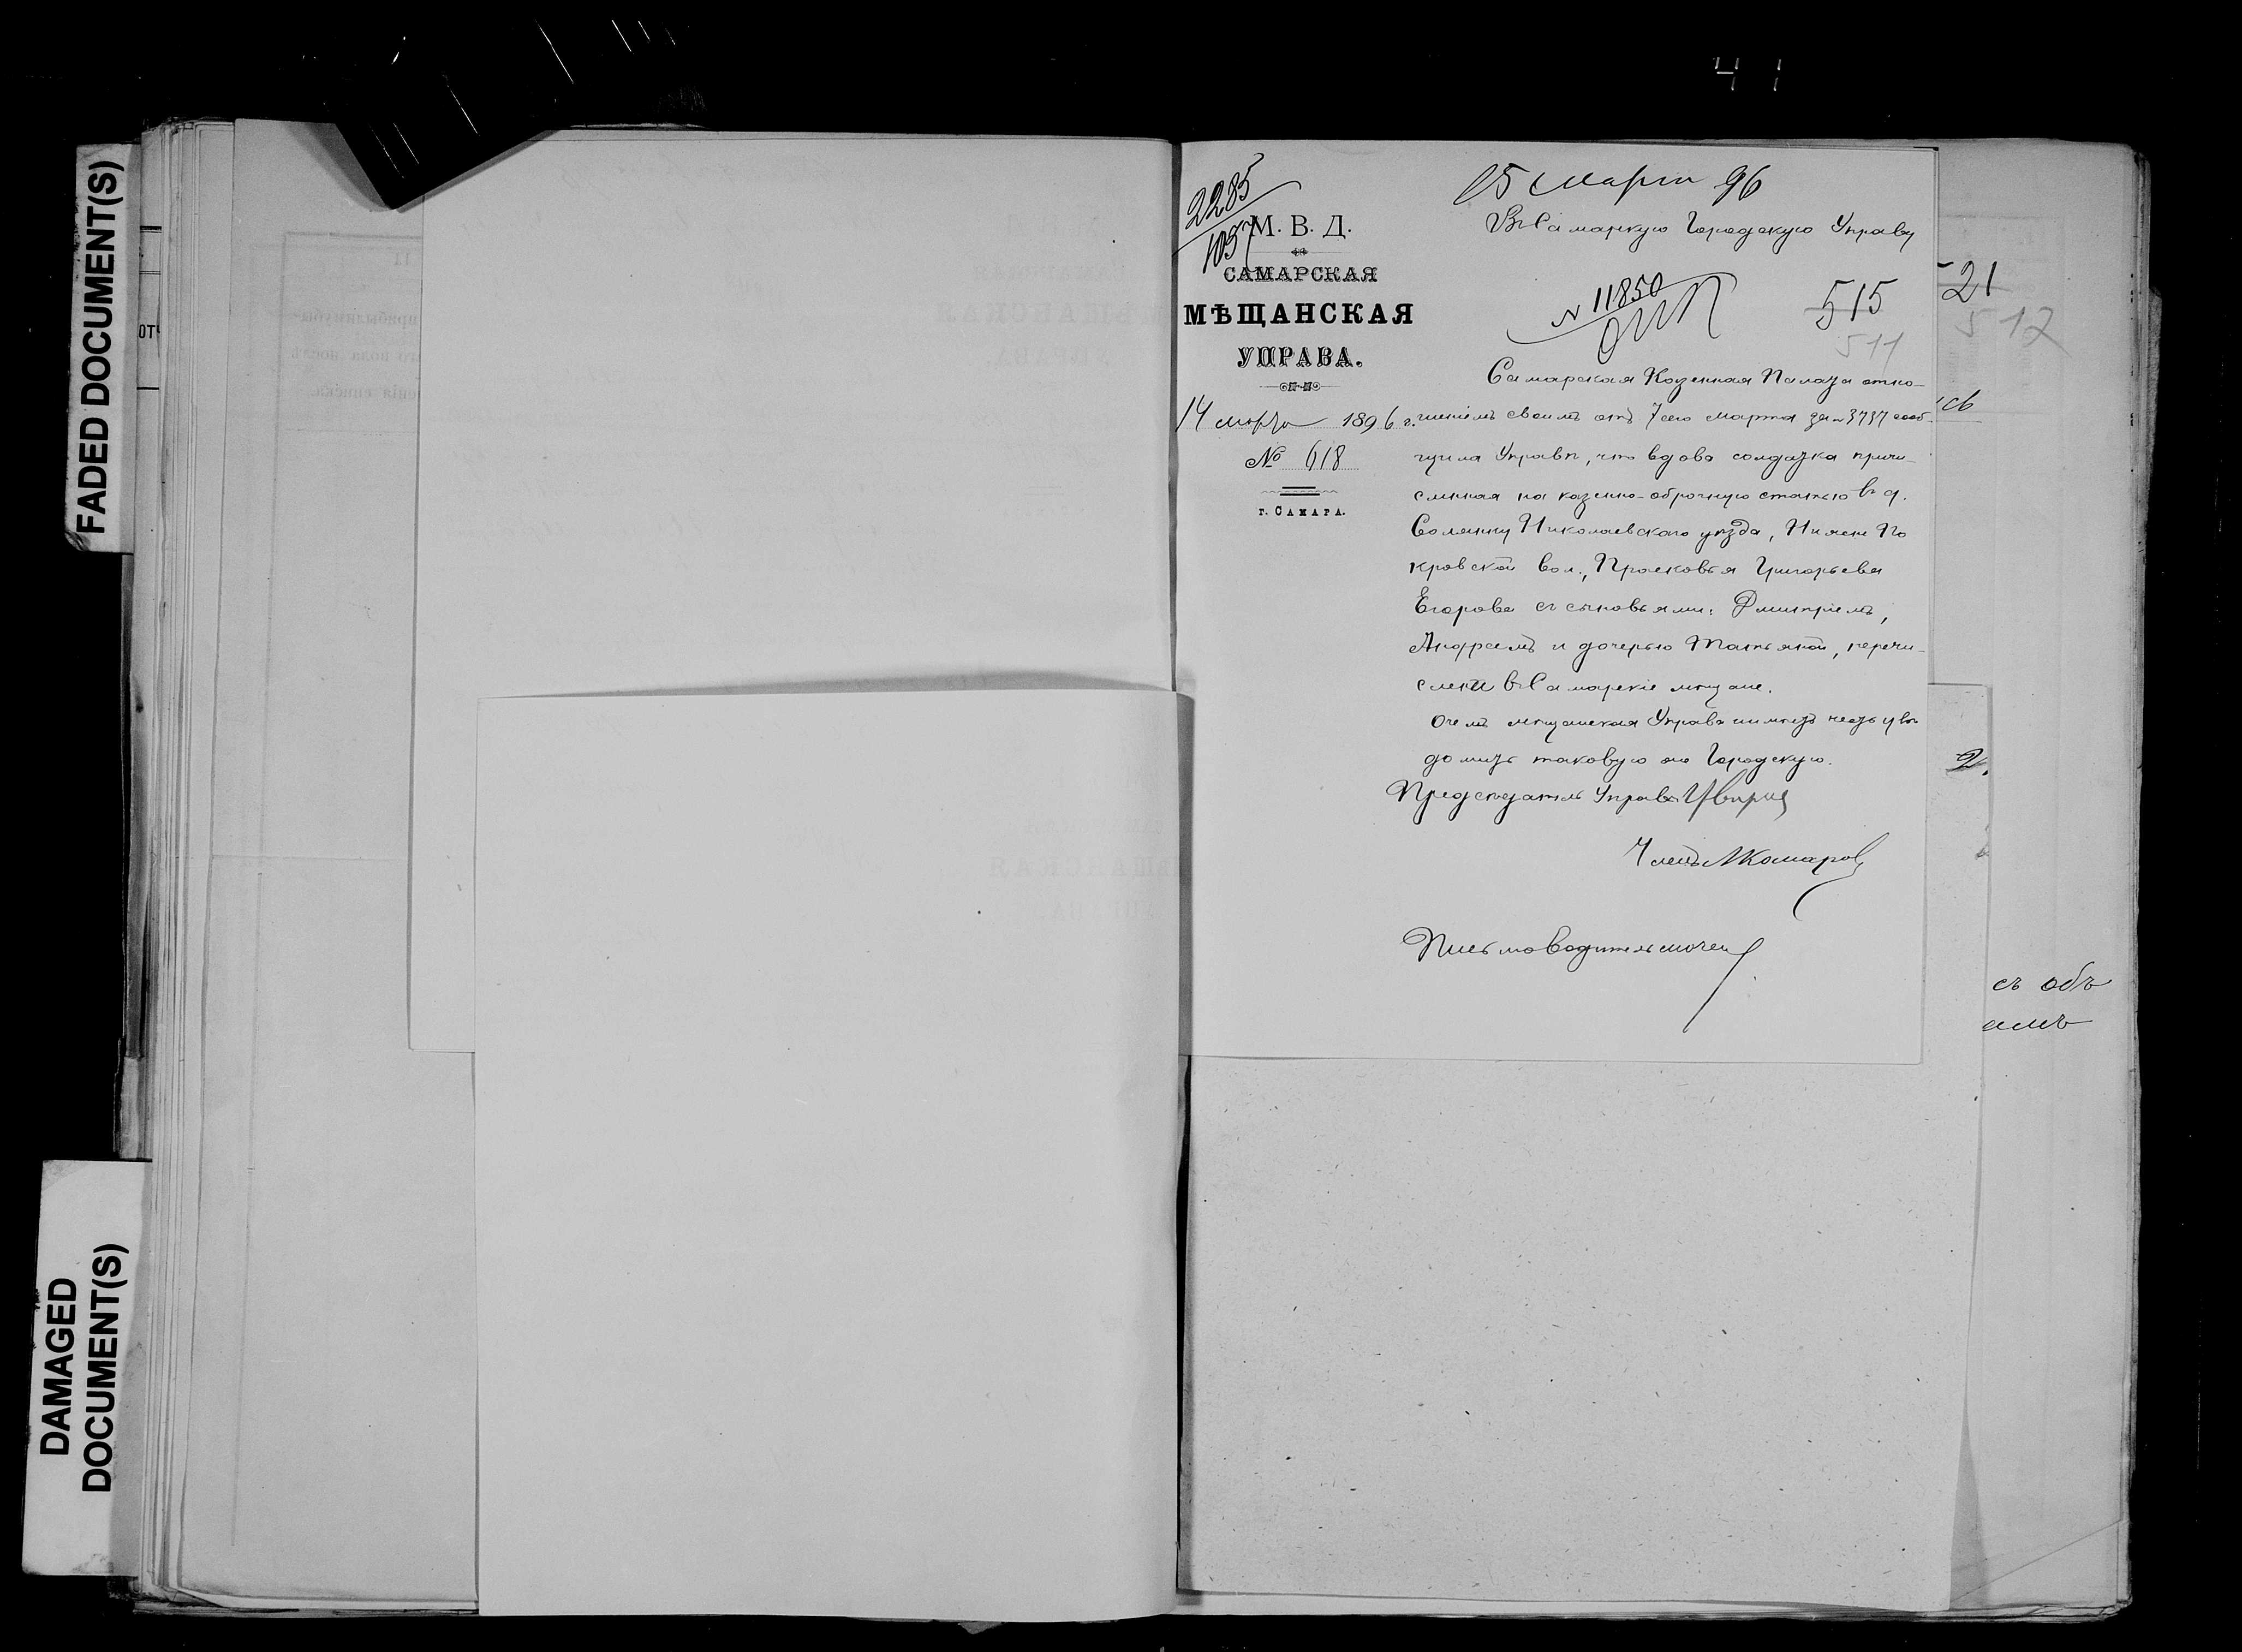 41
FADED DOCUMENT(S)
DAMAGED
DOCUMENT(S)
2285
1057
М. В. Д.
САМАРСКАЯ
МѢЩАНСКАЯ
УПРАВА.
14 марта 1896 г.
№ 618
г. САМАРА.
15 Марта 96
Въ Самаркую Городскую Управу
N 11850
515
511
Самарская Казенная Палата отно-
шеніемъ своимъ отъ 7 сего Марта за N 3737 сооб-
щила Управѣ, что вдова солдатка причи-
сленная на казенно-оброчную статью въ д.
Солянку Николаевскаго уѣзда, Нижне По
кровской вол., Прасковья Григорьева
Егорова съ сыновьями: Дмитріемъ,
Андреемъ и дочерью Татьяной, перечи-
слена въ Самарскіе мѣщане.
О чемъ мѣщанская Управа имѣетъ честь увѣ
домить таковую же Городскую.
Предсѣдатель Управы
Членъ АКомаровъ
Письмоводитель
21
512
съ объ
амъ